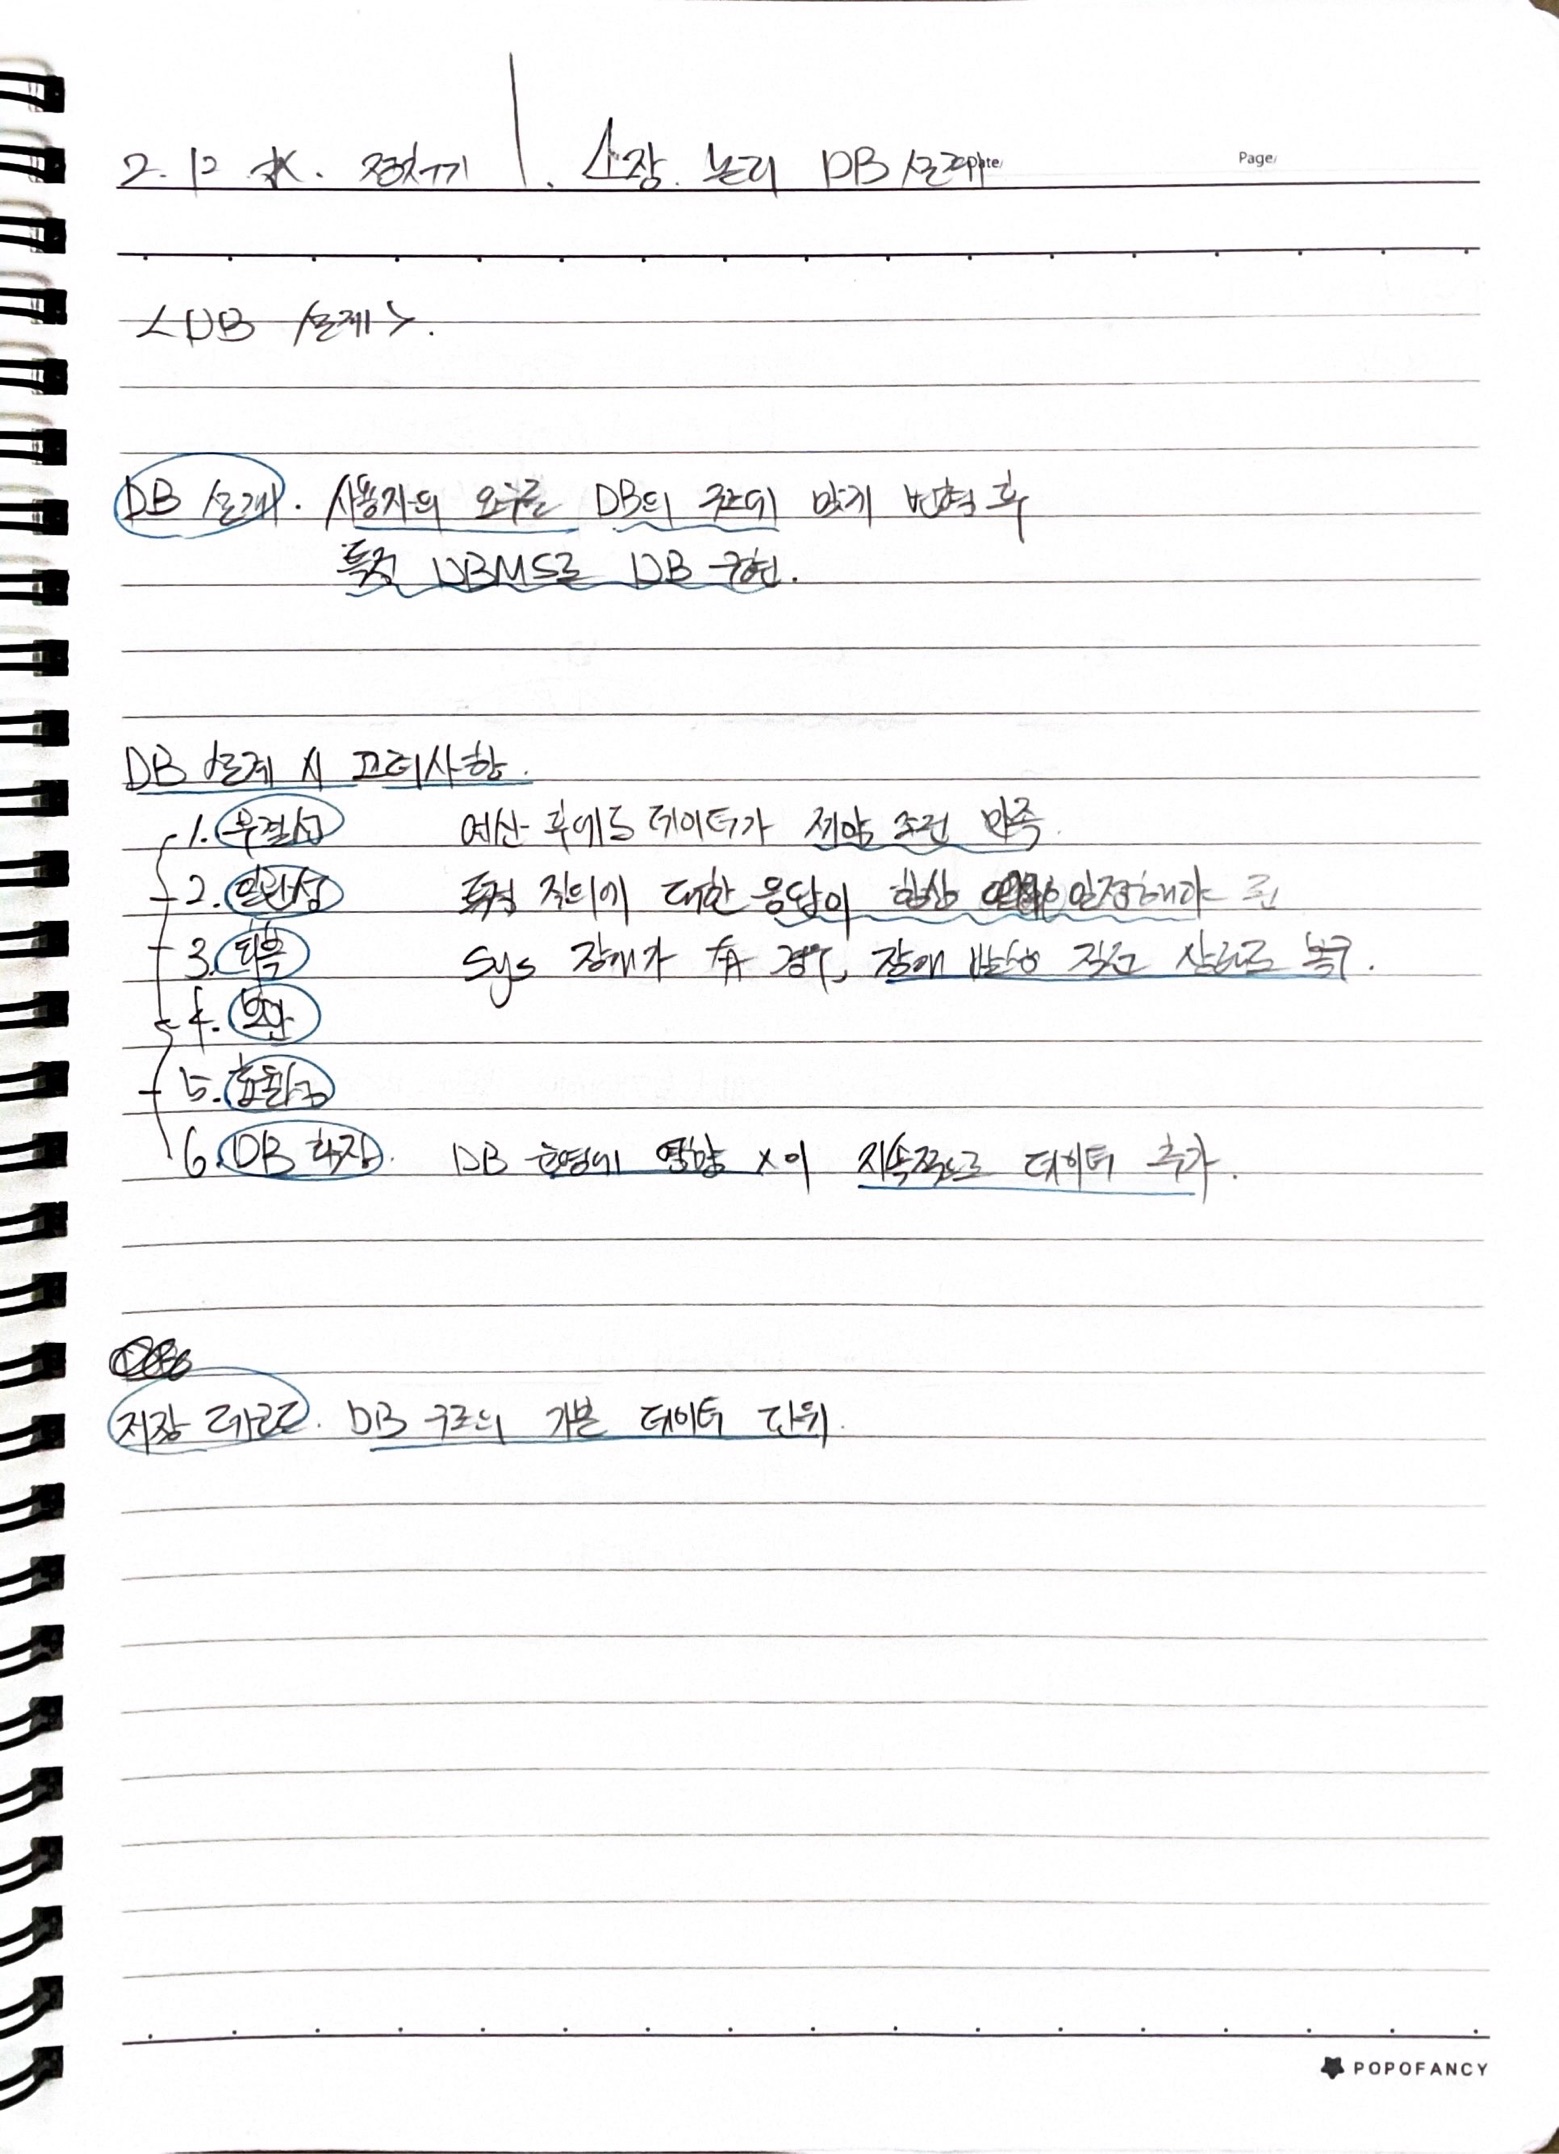 2. 12 水. 정처기 1. 소장. 논리 DB 설계
Page/
<DB 설계>.
DB 설계. 사용자의 요구를 DB의 구조에 맞게 변형 후
특정 DBMS로 DB 구현.
DB 설계 시 고려사항.
1. 무결성 연산 후에도 데이터가 제약 조건 만족.
2. 일관성 특정 질의에 대한 응답이 항상 일정해야
3. 회복 Sys 장애가 有 경우, 장애 발생 직전 상태로 복구.
4. 보안
5. 효율성
6. DB 확장. DB 운영에 영향 X이 지속적으로 데이터 추가.
저장 레코드. DB 구조의 기본 데이터 단위.
POPOFANCY